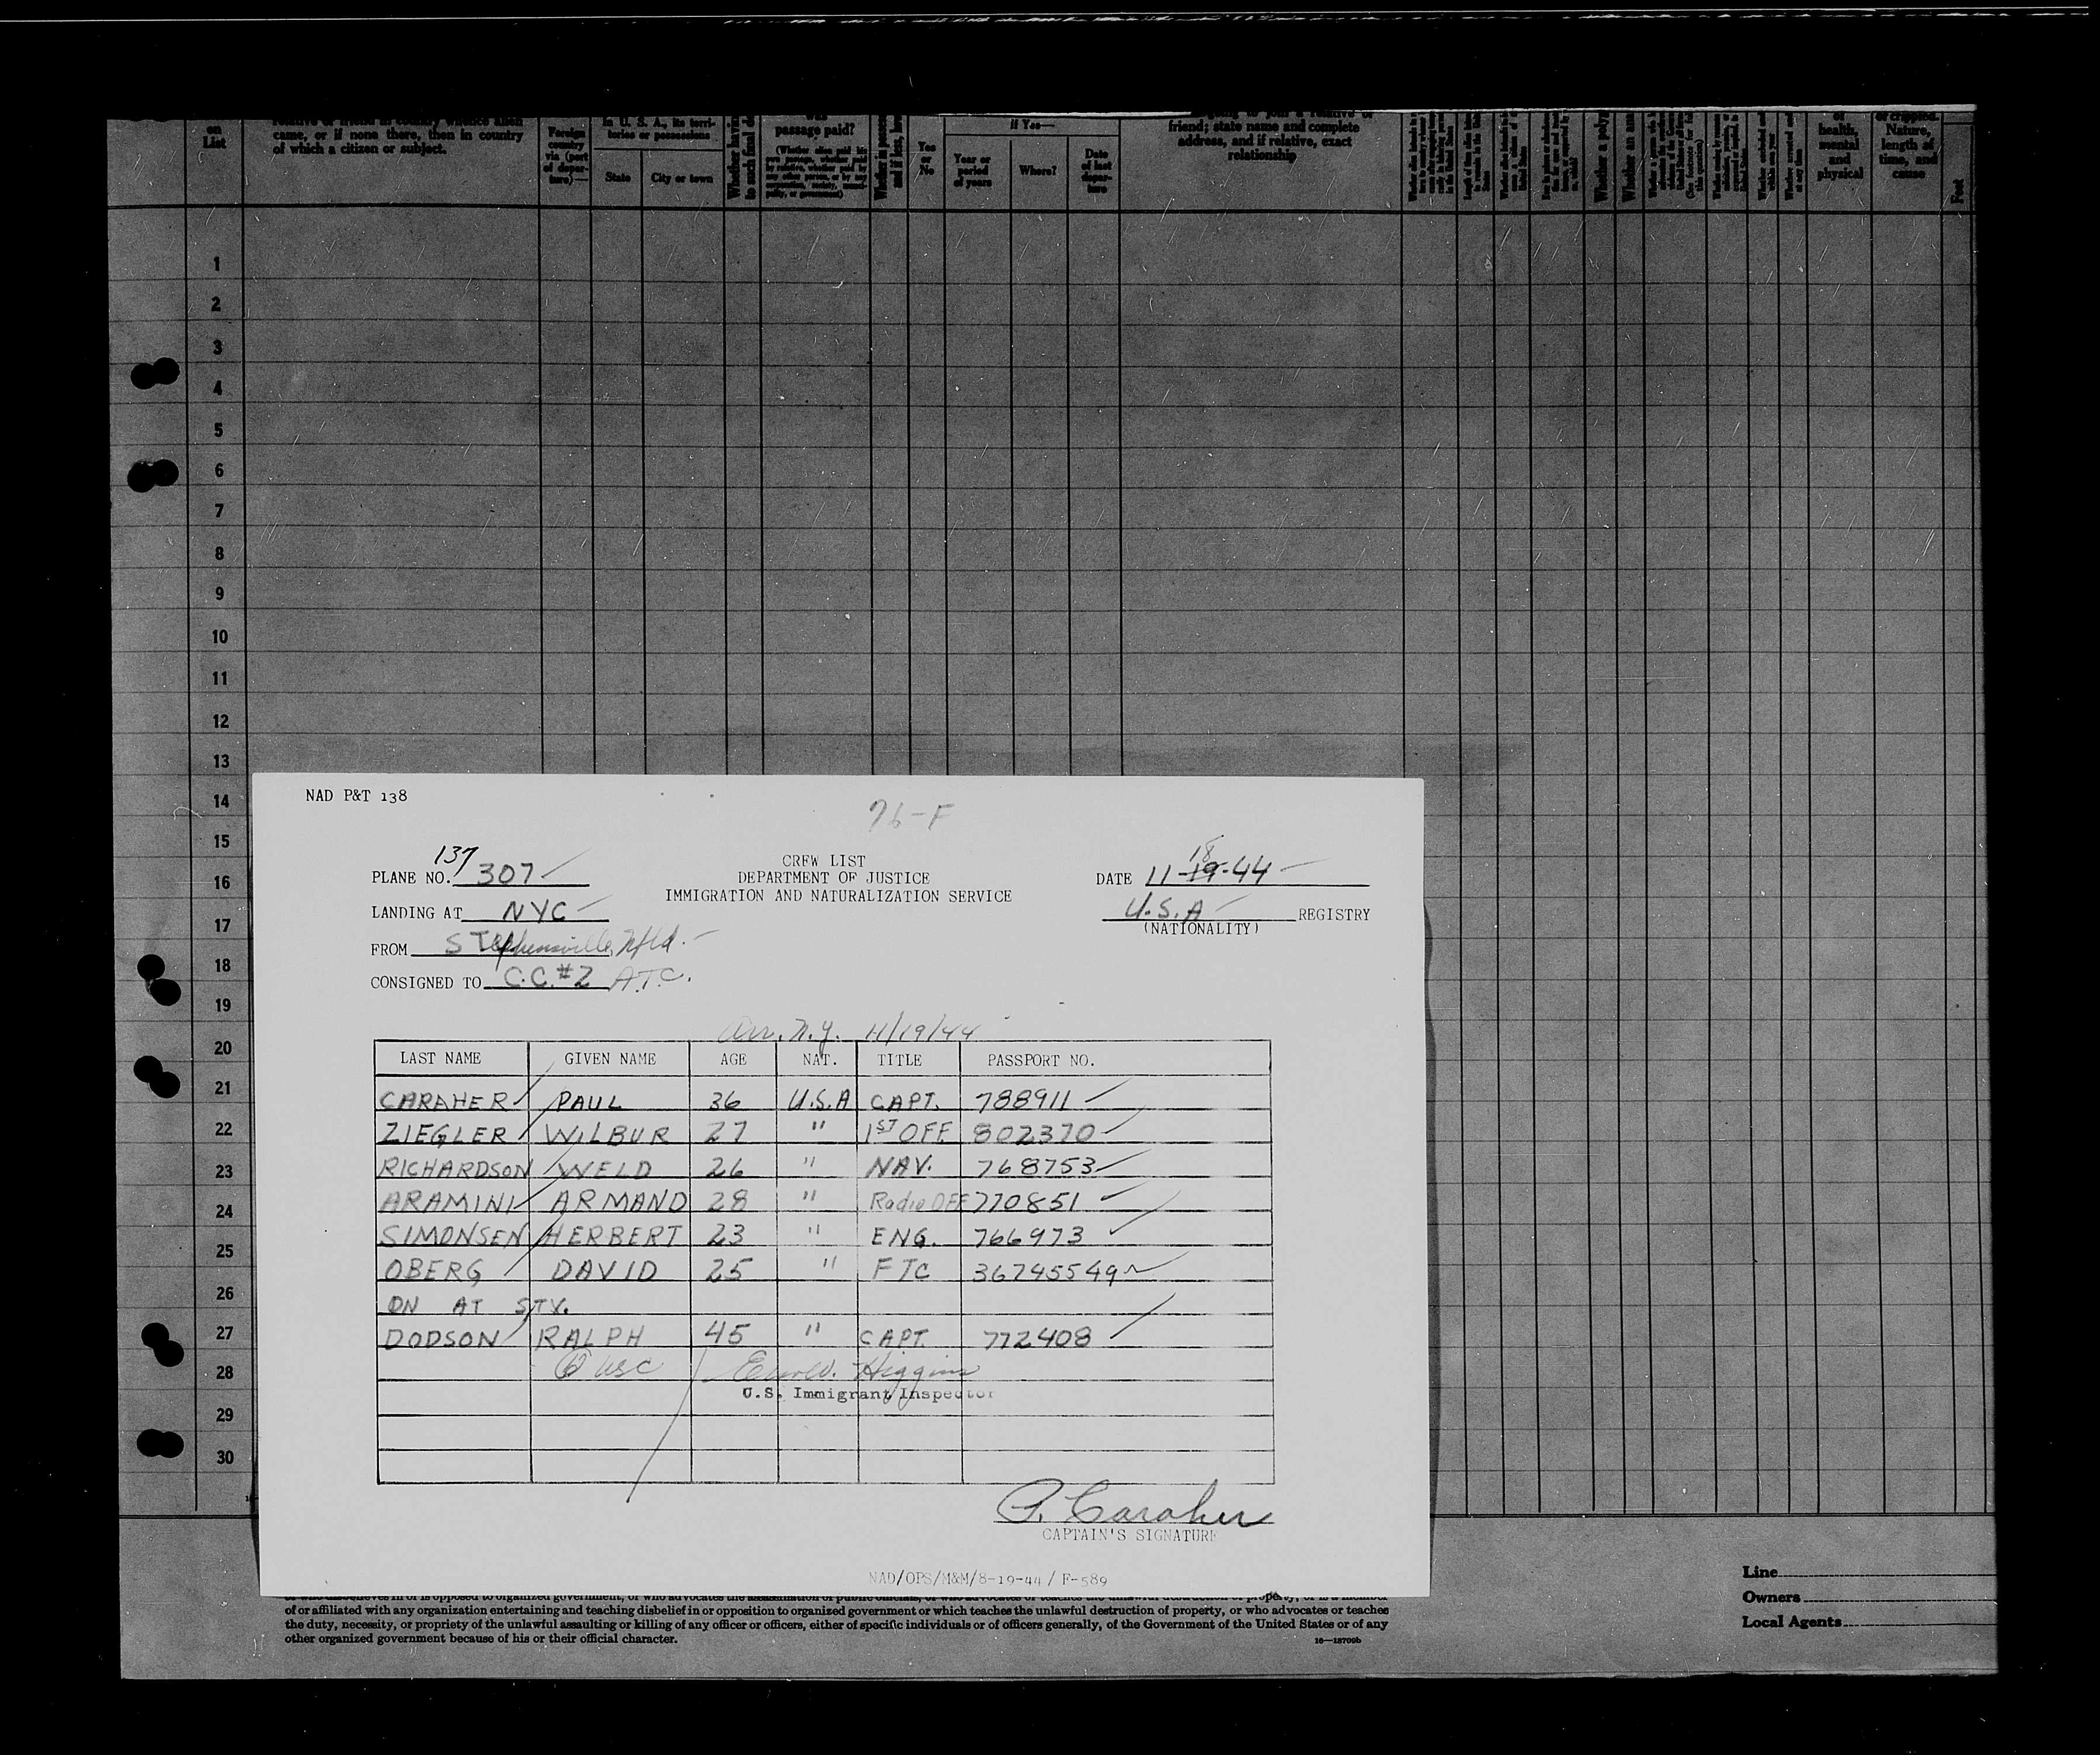 on
List
came, or if none there, then in country
of which a citizen or subject.
Foreign
country
via (port
of depar-
ture)—
in U. S. A., its terri-
tories or possessions
State
City or town
passage paid?
Yes
or
No
If Yes—
Year or
period
of years
Where?
Date
of last
depar-
ture
friend; state name and complete
address, and if relative, exact
relationship
of
health,
mental
and
physical
or crippled.
Nature,
length of
time, and
cause
Feet
1
2
3
4
5
6
7
8
9
10
11
12
13
14
15
16
17
18
19
20
21
22
23
24
25
26
27
28
29
30
NAD P&T 138
76-F
CREW LIST
DEPARTMENT OF JUSTICE
IMMIGRATION AND NATURALIZATION SERVICE
137
PLANE NO. 307
LANDING AT NYC
FROM Stephensville, Nfld.
CONSIGNED TO C.C.#2 A.T.C.
18
DATE 11-19-44
U.S.A REGISTRY
(NATIONALITY)
Arr. N.Y. 11/19/44
LAST NAME GIVEN NAME AGE NAT. TITLE PASSPORT NO.
CARAHER PAUL 36 U.S.A CAPT. 788911
ZIEGLER WILBUR 27 " 1ST OFF 802370
RICHARDSON WELD 26 " NAV. 768753
ARAMINI ARMAND 28 " Radio OFF 770851
SIMONSEN HERBERT 23 " ENG. 766973
OBERG DAVID 25 " FTC 36745549
ON AT STV.
DODSON RALPH 45 " CAPT. 772408
6 USC Higgins
U.S. Immigrant Inspector
P. Caraher
CAPTAIN'S SIGNATURE
NAD/OPS/M&M/8-19-44 / F-589
of or affiliated with any organization entertaining and teaching disbelief in or opposition to organized government or which teaches the unlawful destruction of property, or who advocates or teaches
the duty, necessity, or propriety of the unlawful assaulting or killing of any officer or officers, either of specific individuals or of officers generally, of the Government of the United States or of any
other organized government because of his or their official character.
16—18709b
Line
Owners
Local Agents